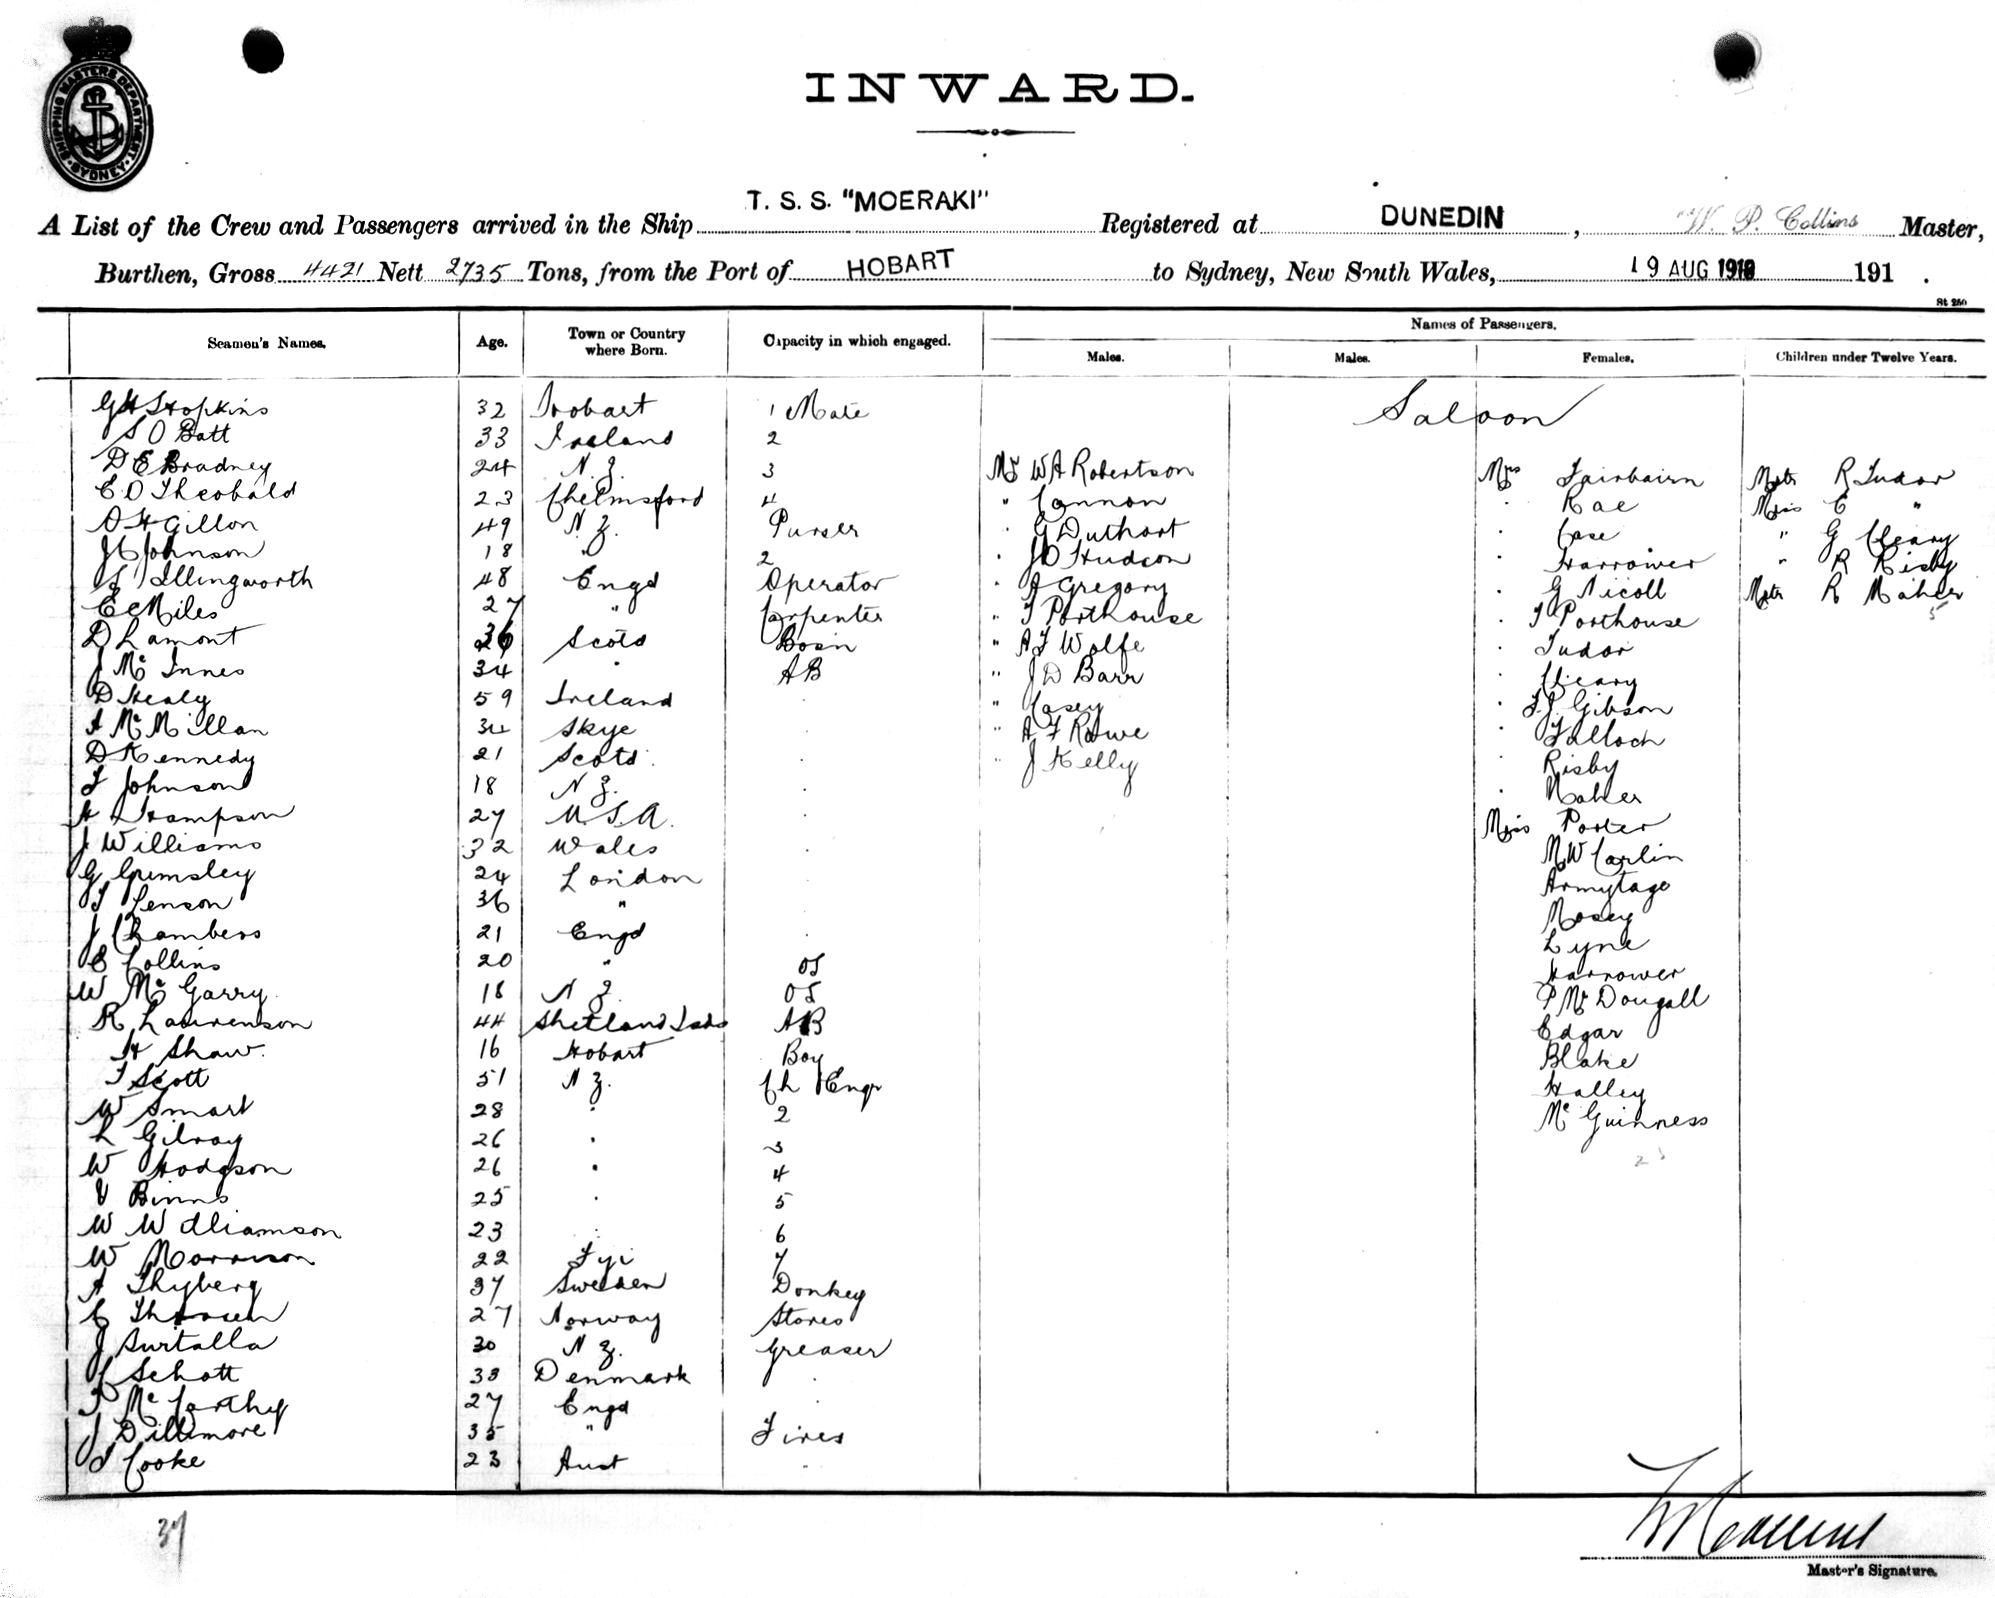 SHIPPING MASTERS DEPARTMENT SYDNEY
INWARD.
A List of the Crew and Passengers arrived in the Ship T. S. S. "MOERAKI" Registered at DUNEDIN, W. P. Collins Master,
Burthen, Gross 4421 Nett 2735 Tons, from the Port of HOBART to Sydney, New South Wales, 19 AUG 191 191 .
St 250
Seamen's Names. Age. Town or Country where Born. Capacity in which engaged. Names of Passengers.
Males. Males. Females. Children under Twelve Years.
Saloon
G H Hopkins 32 Hobart 1 Mate
S O Batt 33 Ireland 2
D E Bradney 24 N. Z. 3 Mr W A Robertson Mrs Fairbairn Mstr R Tudor
E O Theobald 23 Chelmsford 4 " Cannon " Rae Miss E "
A H Gillon 49 N. Z. Purser " G Duthart " Case " G Cleary
J C Johnson 18 " 2 " J D Hudson " Harrower " R Risby
S Illingworth 48 Engd Operator " A Gregory " G Nicoll Mstr R Maher
E C Miles 27 " Carpenter " T Porthouse " T Porthouse 5
D Lamont 36 Scots Bosn " A F Wolfe " Tudor
J Mc Innes 34 " AB " J D Barr " Cleary
D Healy 59 Ireland " " Casey " F. J. Gibson
A Mc Millan 34 Skye " " A F Rowe " Tulloch
D Kennedy 21 Scots " " J Kelly " Risby
F Johnson 18 N Z. " " Maher
H Hampson 27 U. S. A. " Miss Porter
J Williams 32 Wales " M W Carlin
G Grimsley 24 London " Armytage
T Lenson 36 " " Mosey
J Chambers 21 Engd " Lyne
C Collins 20 " OS Harrower
W Mc Garry 18 N Z. OS P Mc Dougall
R Laurenson 44 Shetland Isds AB Edgar
H Shaw. 16 Hobart Boy Blake
T Scott 51 N Z. Ch Engr Halley
W Smart 28 " 2 Mc Guinness
L Gilroy 26 " 3
W Hodgson 26 " 4
V Binns 25 " 5
W Williamson 23 " 6
W Morrison 22 Fyi 7
A Thyberg 37 Sweden Donkey
C Thorsen 27 Norway Stores
J Surtalla 30 N Z. Greaser
Schott 33 Denmark "
P Mc Carthy 27 Engd "
J Dillimore 35 " Fires
J Cooke 23 Aust "
37
W P Collins
Master's Signature.